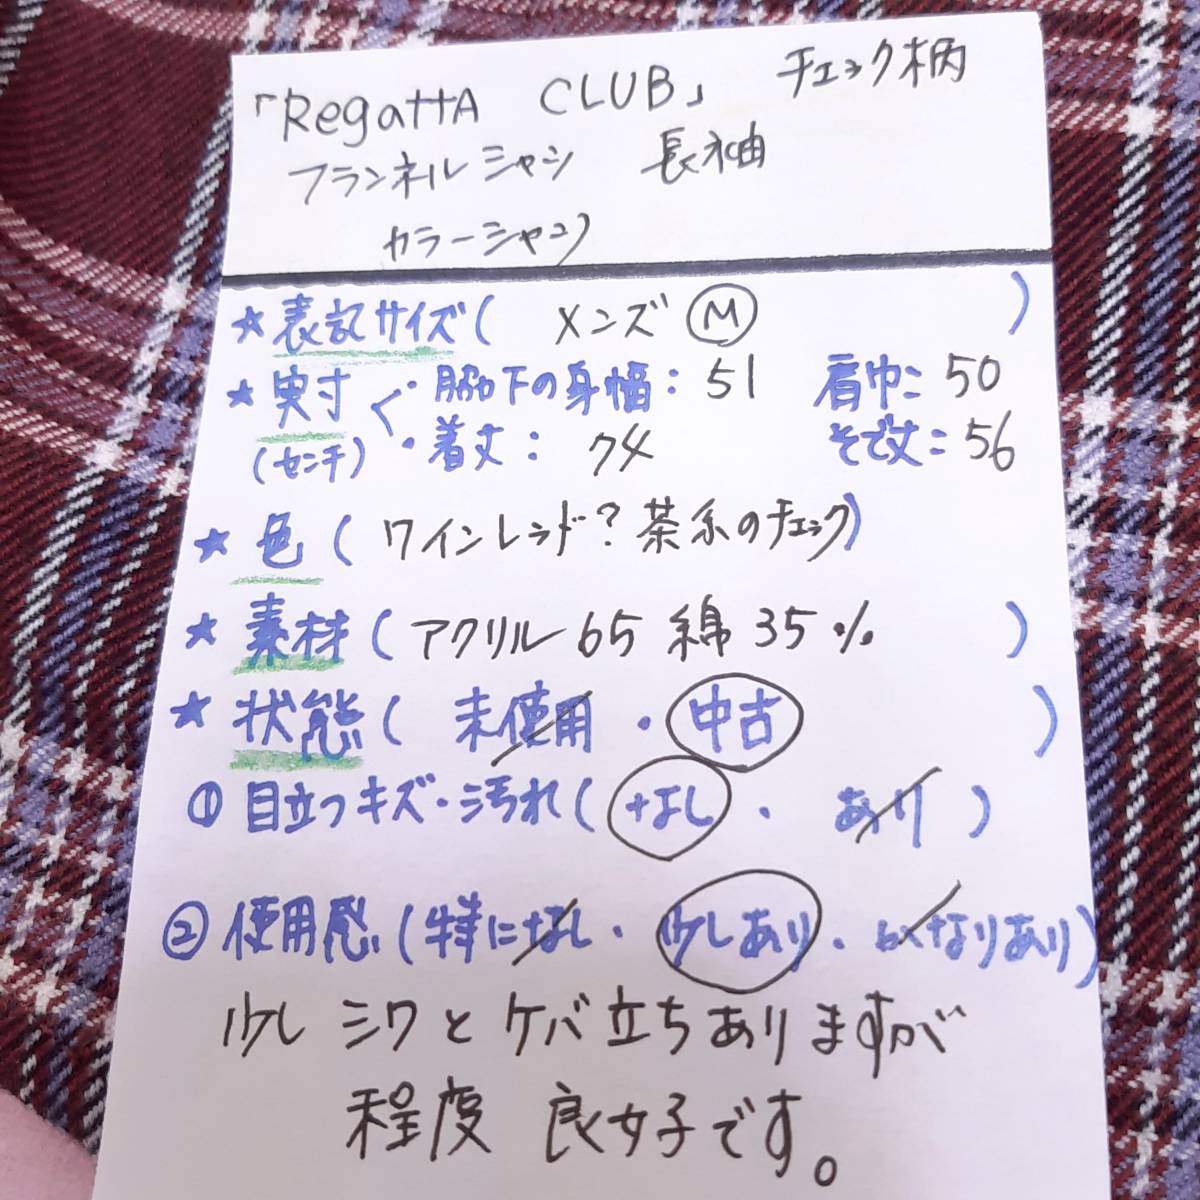 「RegattA CLUB」 チェック柄
フランネルシャツ 長袖
カラーシャツ
★表記サイズ( メンズ Ⓜ )
★実寸 ・脇下の身幅:51 肩巾:50
(センチ) ・着丈:74 そで丈:56
★色(ワインレッド?茶系のチェック)
★素材(アクリル65 綿35% )
★状態( 未使用・中古 )
①目立つキズ・汚れ(なし・ あり )
②使用感(特になし・少しあり・かなりあり)
少しシワとケバ立ちありますが
程度 良好です。